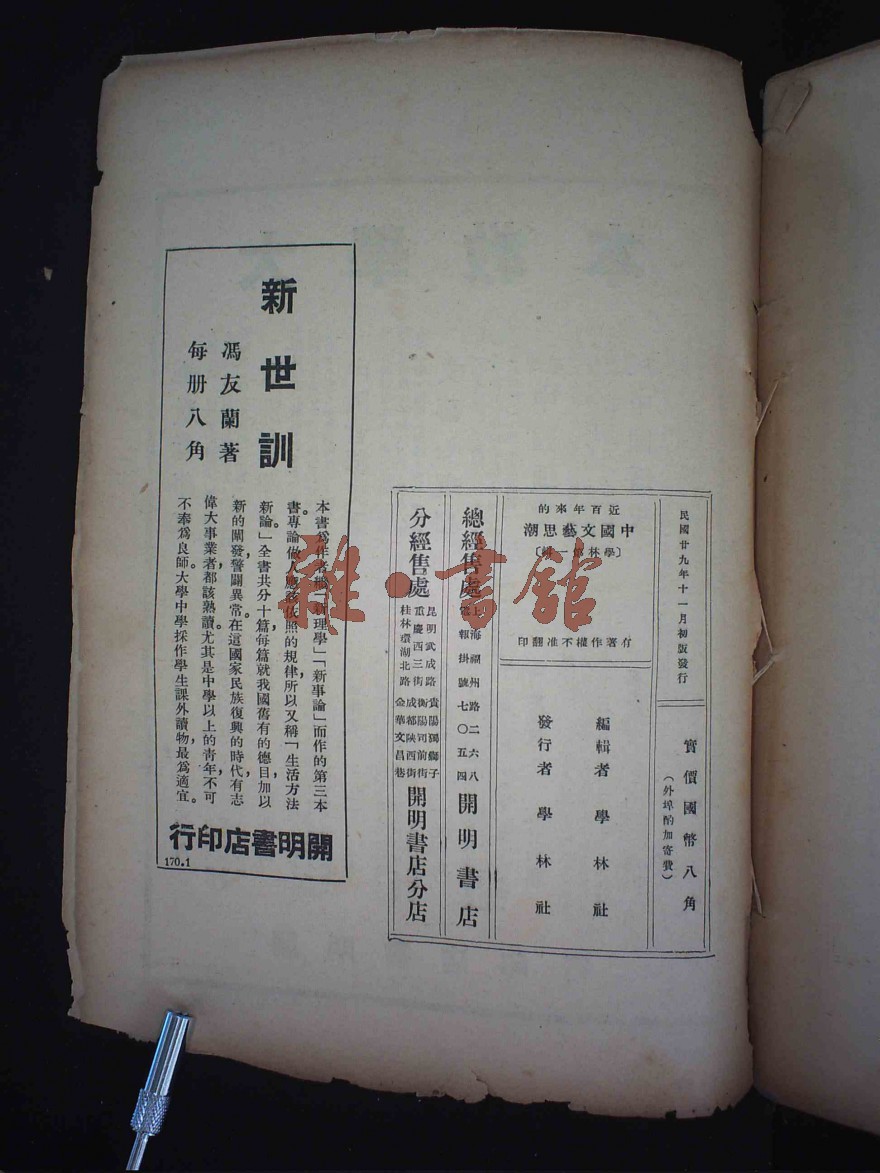 民國廿九年十一月初版發行
實價國幣八角
（外埠酌加寄費）
近百年來的
中國文藝思潮
〔學林第一輯〕
有著作權不准翻印
編輯者 學林社
發行者 學林社
總經售處
上海福州路二六八
電報掛號七〇五四
開明書店
分經售處
昆明武成路 貴陽獨獅子
重慶西三街 衡陽司前街
成都陝西街
桂林環湖北路 金華文昌巷
開明書店分店
新世訓
馮友蘭著
每册八角
本書爲作者繼「新理學」「新事論」而作的第三本
書。專論做人應該依照的規律，所以又稱「生活方法
新論」。全書共分十篇，每篇就我國舊有的德目加以
新的闡發，警闢異常。在這國家民族復興的時代，有志
偉大事業者都該熟讀。尤其是中學以上的青年，不可
不奉爲良師。大學中學採作學生課外讀物，最爲適宜。
開明書店印行
170.1
雜·書館